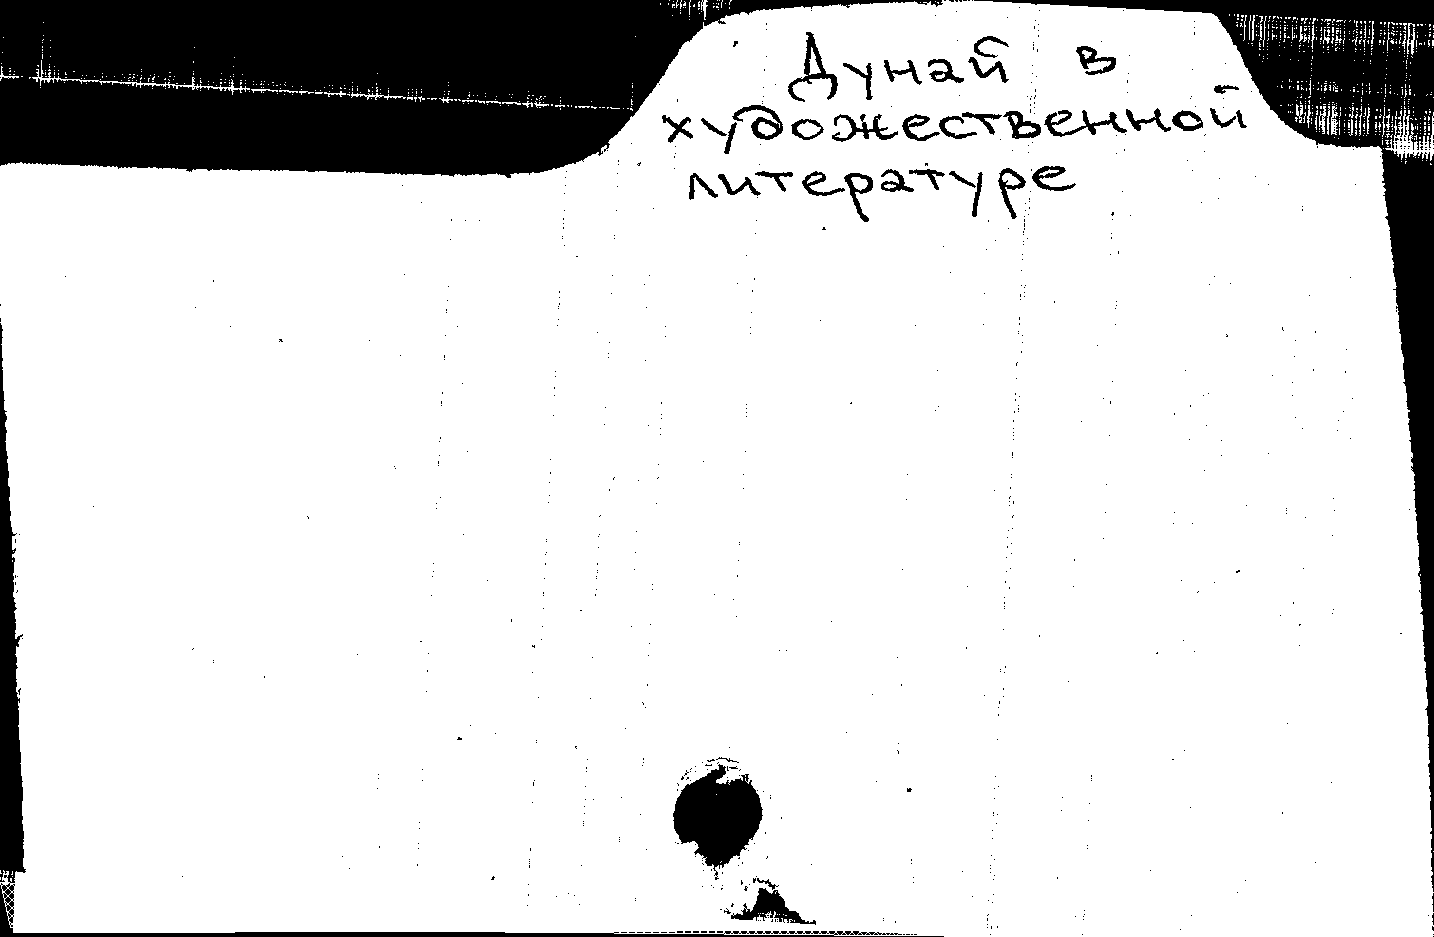 Дунай в
художественной
литературе